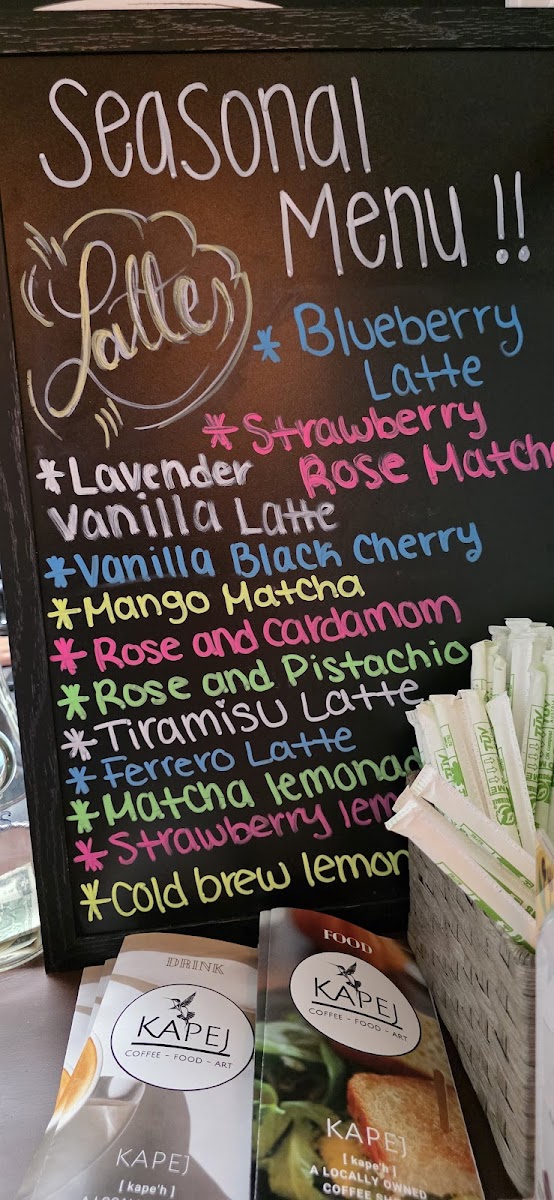 Seasonal
Menu !!
Latte
* Blueberry
Latte
* Strawberry
Rose Matcha
* Lavender
Vanilla Latte
* Vanilla Black Cherry
* Mango Matcha
* Rose and Cardamom
* Rose and Pistachio
* Tiramisu Latte
* Ferrero Latte
* Matcha lemonad
* Strawberry lem
* Cold brew lemon
DRINK
KAPEJ
COFFEE - FOOD - ART
KAPEJ
[ kape'h ]
FOOD
KAPEJ
COFFEE - FOOD - ART
KAPEJ
[ kape'h ]
A LOCALLY OWNED
COFFEE